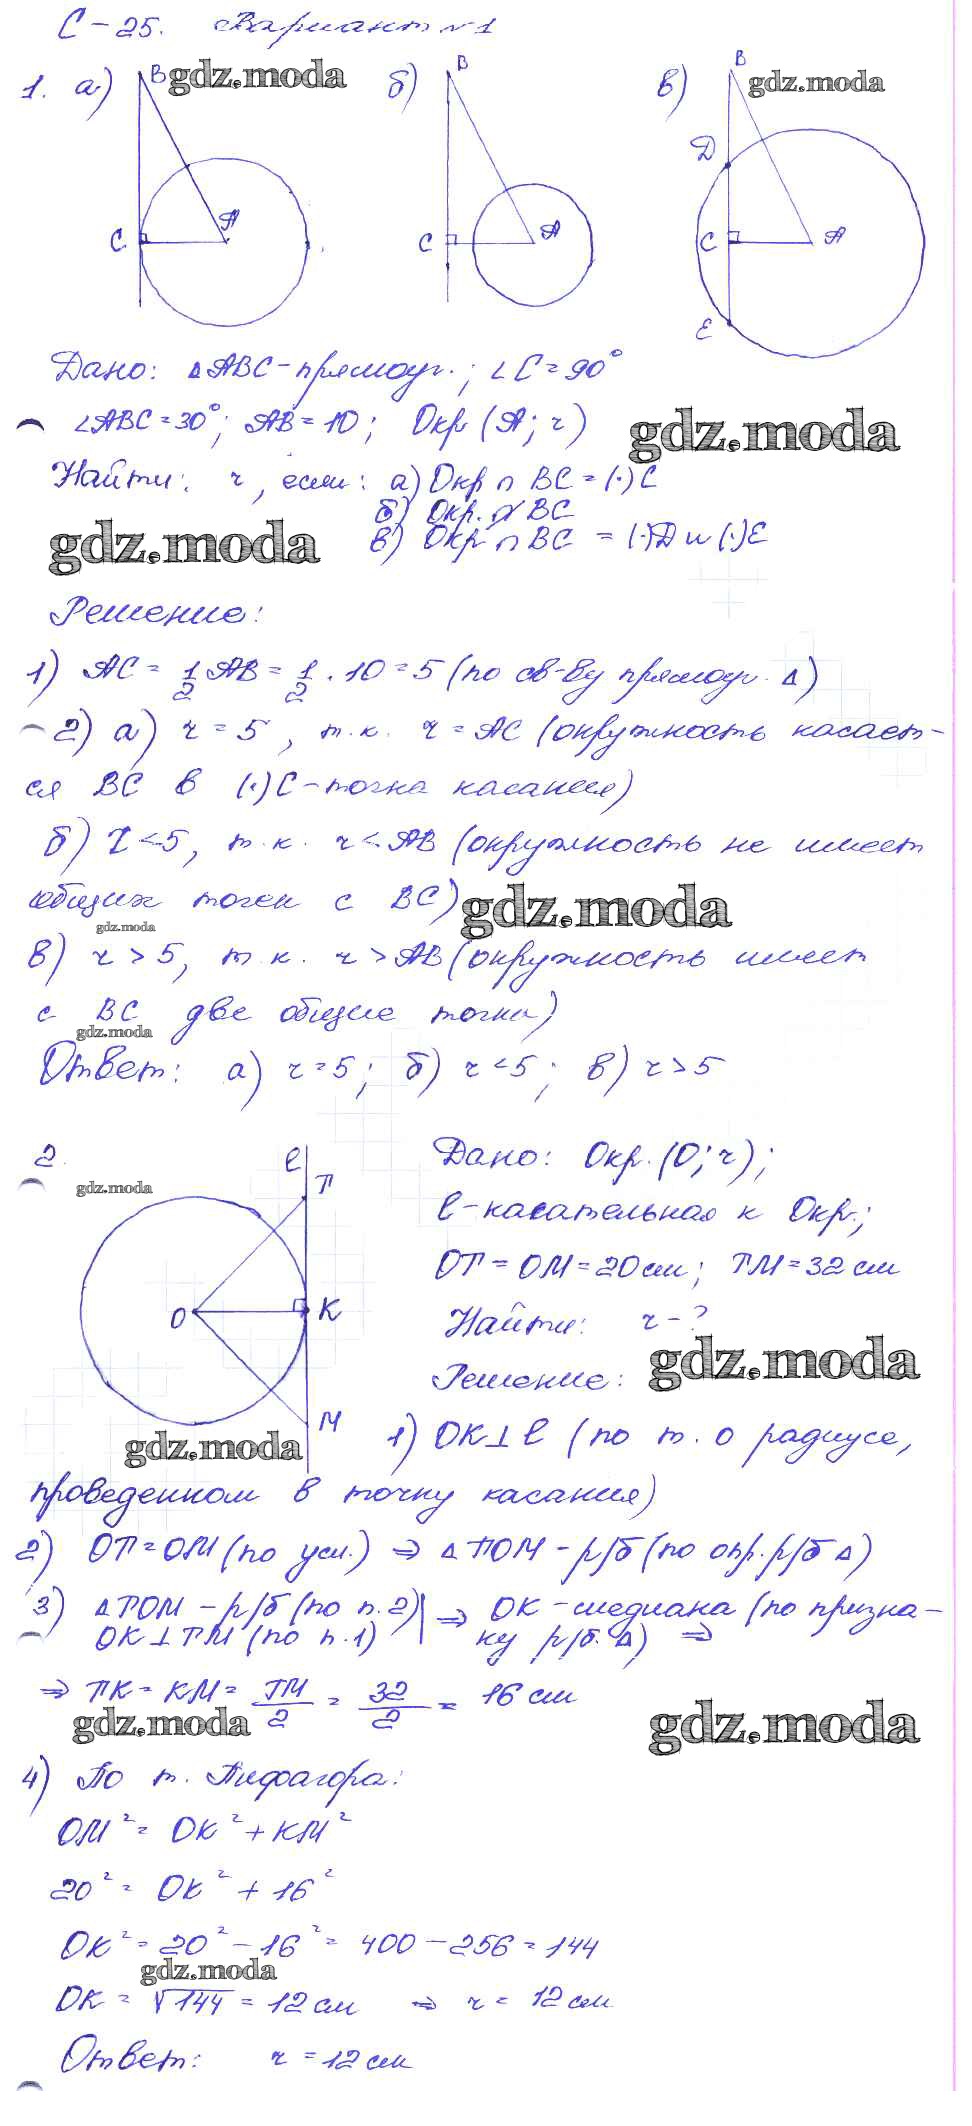 С-25. Вариант №1
1. а) B gdz.moda б) B в) B gdz.moda
D
C A C A C A
E
Дано: △ABC-прямоуг.; ∠C=90°
∠ABC=30°; AB=10; Окр (A; r)
gdz.moda
Найти: r, если: а) Окр ∩ BC = (·) C
б) Окр. ∩̸ BC
gdz.moda
в) Окр ∩ BC = (·)D и (·)E
Решение:
1) AC = 1/2 AB = 1/2 · 10 = 5 (по св-ву прямоуг. △)
2) а) r = 5, т.к. r = AC (окружность касает-
ся BC в (·) C-точка касания)
б) r < 5, т.к. r < AB (окружность не имеет
общих точек с BC)
gdz.moda
gdz.moda
в) r > 5, т.к. r > AB (окружность имеет
с BC две общие точки)
gdz.moda
Ответ: а) r = 5; б) r < 5; в) r > 5
2. ℓ T O K M
gdz.moda
Дано: Окр. (O; r);
ℓ-касательная к Окр.;
OT = OM = 20 см; TM = 32 см
Найти: r - ?
gdz.moda
Решение:
gdz.moda
1) OK ⊥ ℓ (по т. о радиусе,
проведенном в точку касания)
2) OT = OM (по усл.) ⇒ △TOM - р/б (по опр. р/б △)
3) △TOM - р/б (по п. 2) | ⇒ OK - медиана (по призна-
OK ⊥ TM (по п. 1) | ку р/б. △) ⇒
⇒ TK = KM = TM/2 = 32/2 = 16 см
gdz.moda
gdz.moda
4) По т. Пифагора:
OM² = OK² + KM²
20² = OK² + 16²
OK² = 20² - 16² = 400 - 256 = 144
gdz.moda
OK = √144 = 12 см ⇒ r = 12 см
Ответ: r = 12 см